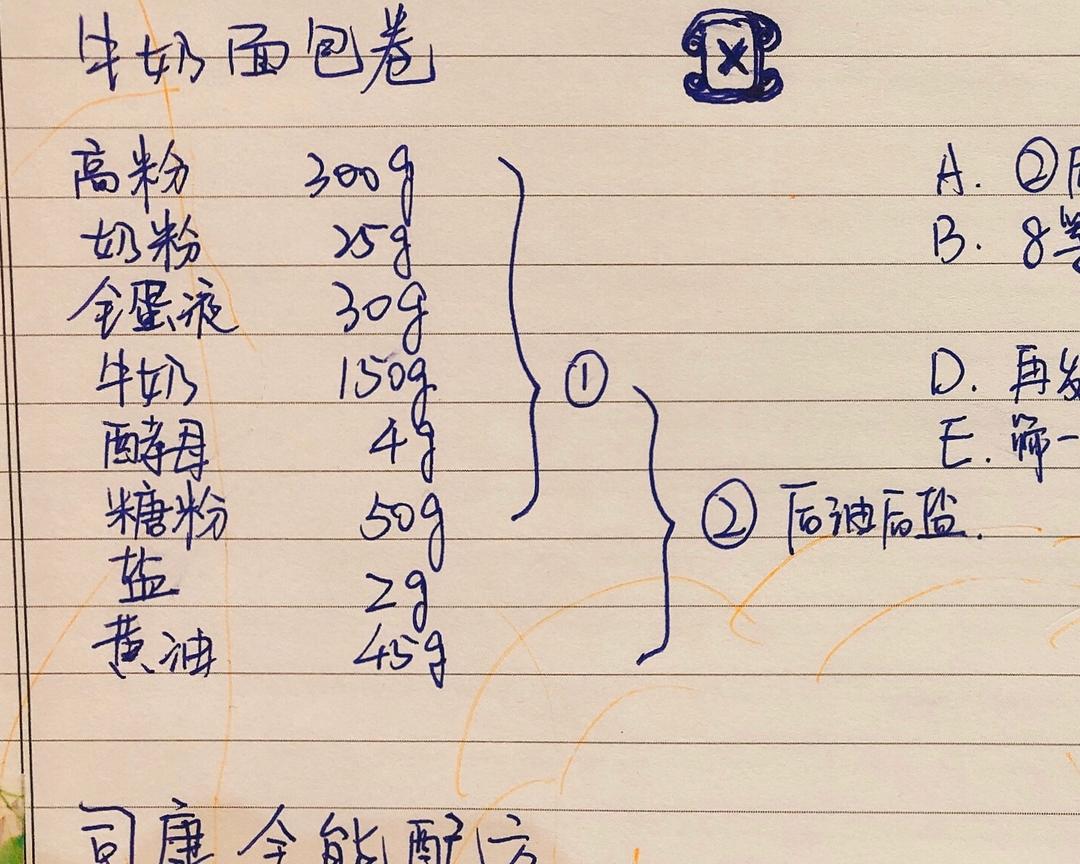 牛奶面包卷
高粉 300g
奶粉 25g
全蛋液 30g
牛奶 150g
酵母 4g
糖粉 50g
盐 2g
黄油 45g
①
② 后油后盐.
A. ②
B. 8等
D. 再发
E. 筛一
司康全能配方